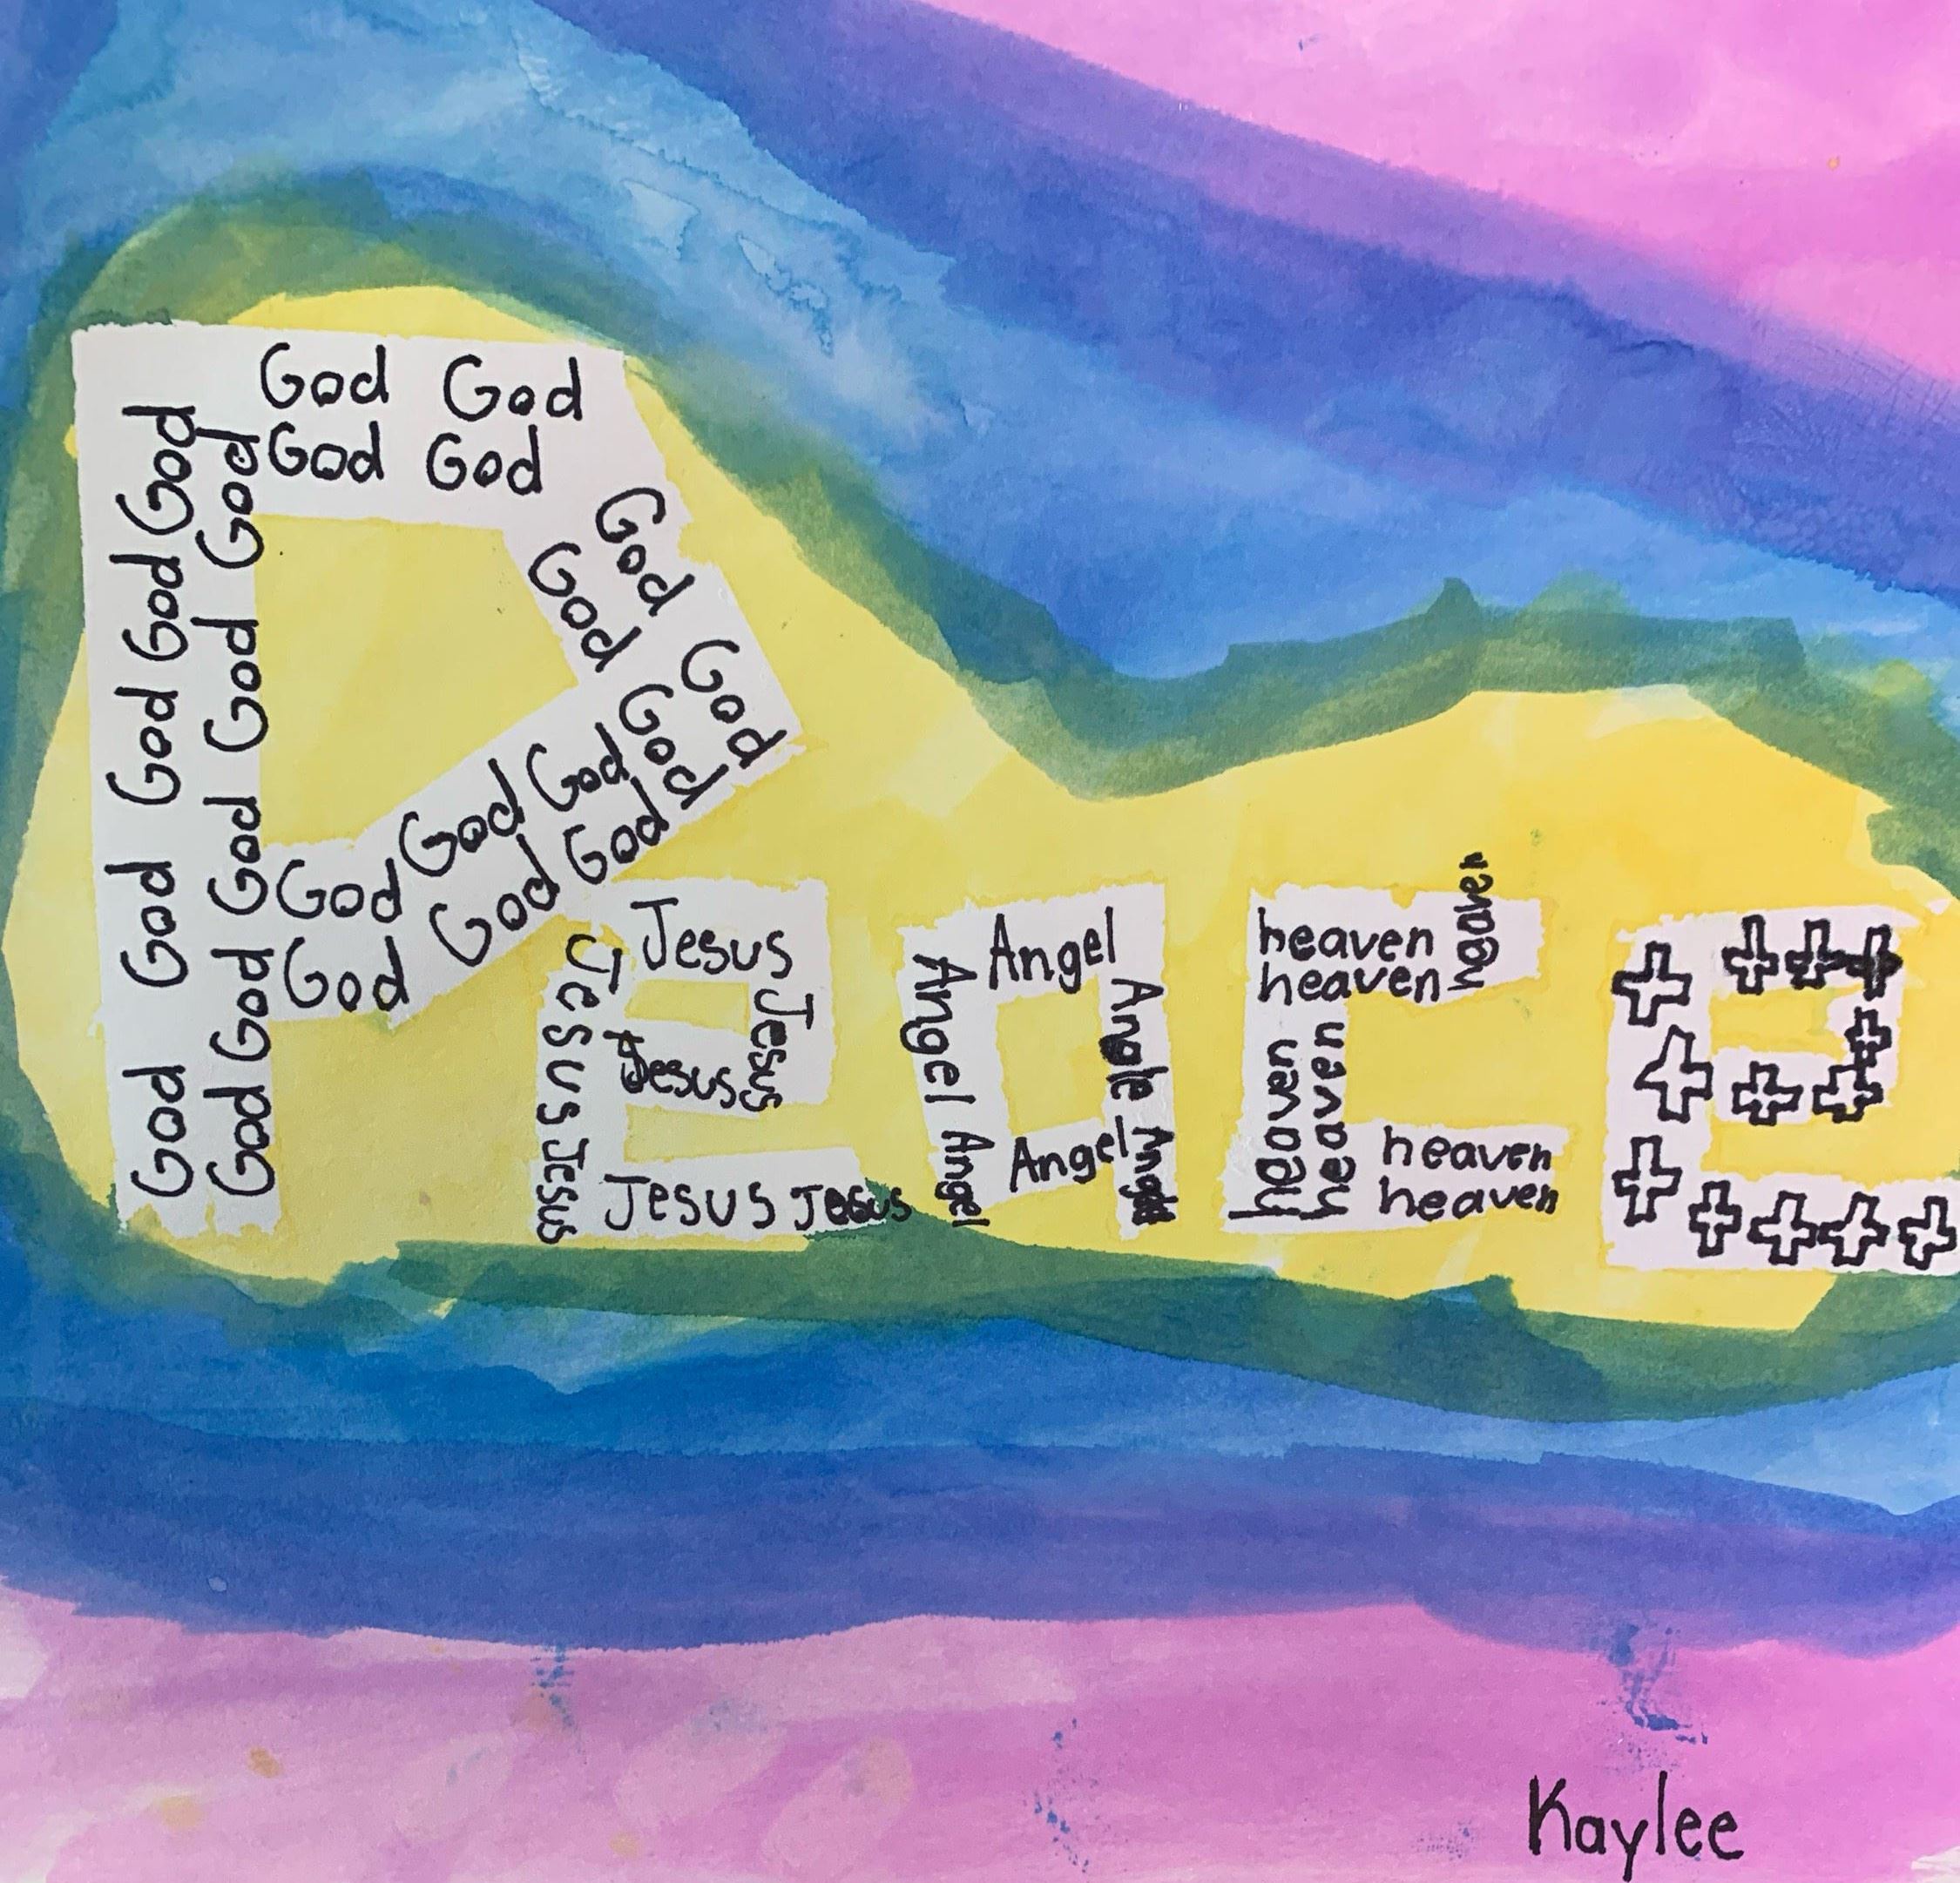 Peace
God God God God God
God God God God God
God God
God God
God God
God God
God God God
God God God
Jesus
Jesus
Jesus
Jesus Jesus
Jesus Jesus
Angel
Angel Angel
Angle Angel
Angel
heaven
heaven
heaven
heaven
heaven
heaven
heaven
Kaylee